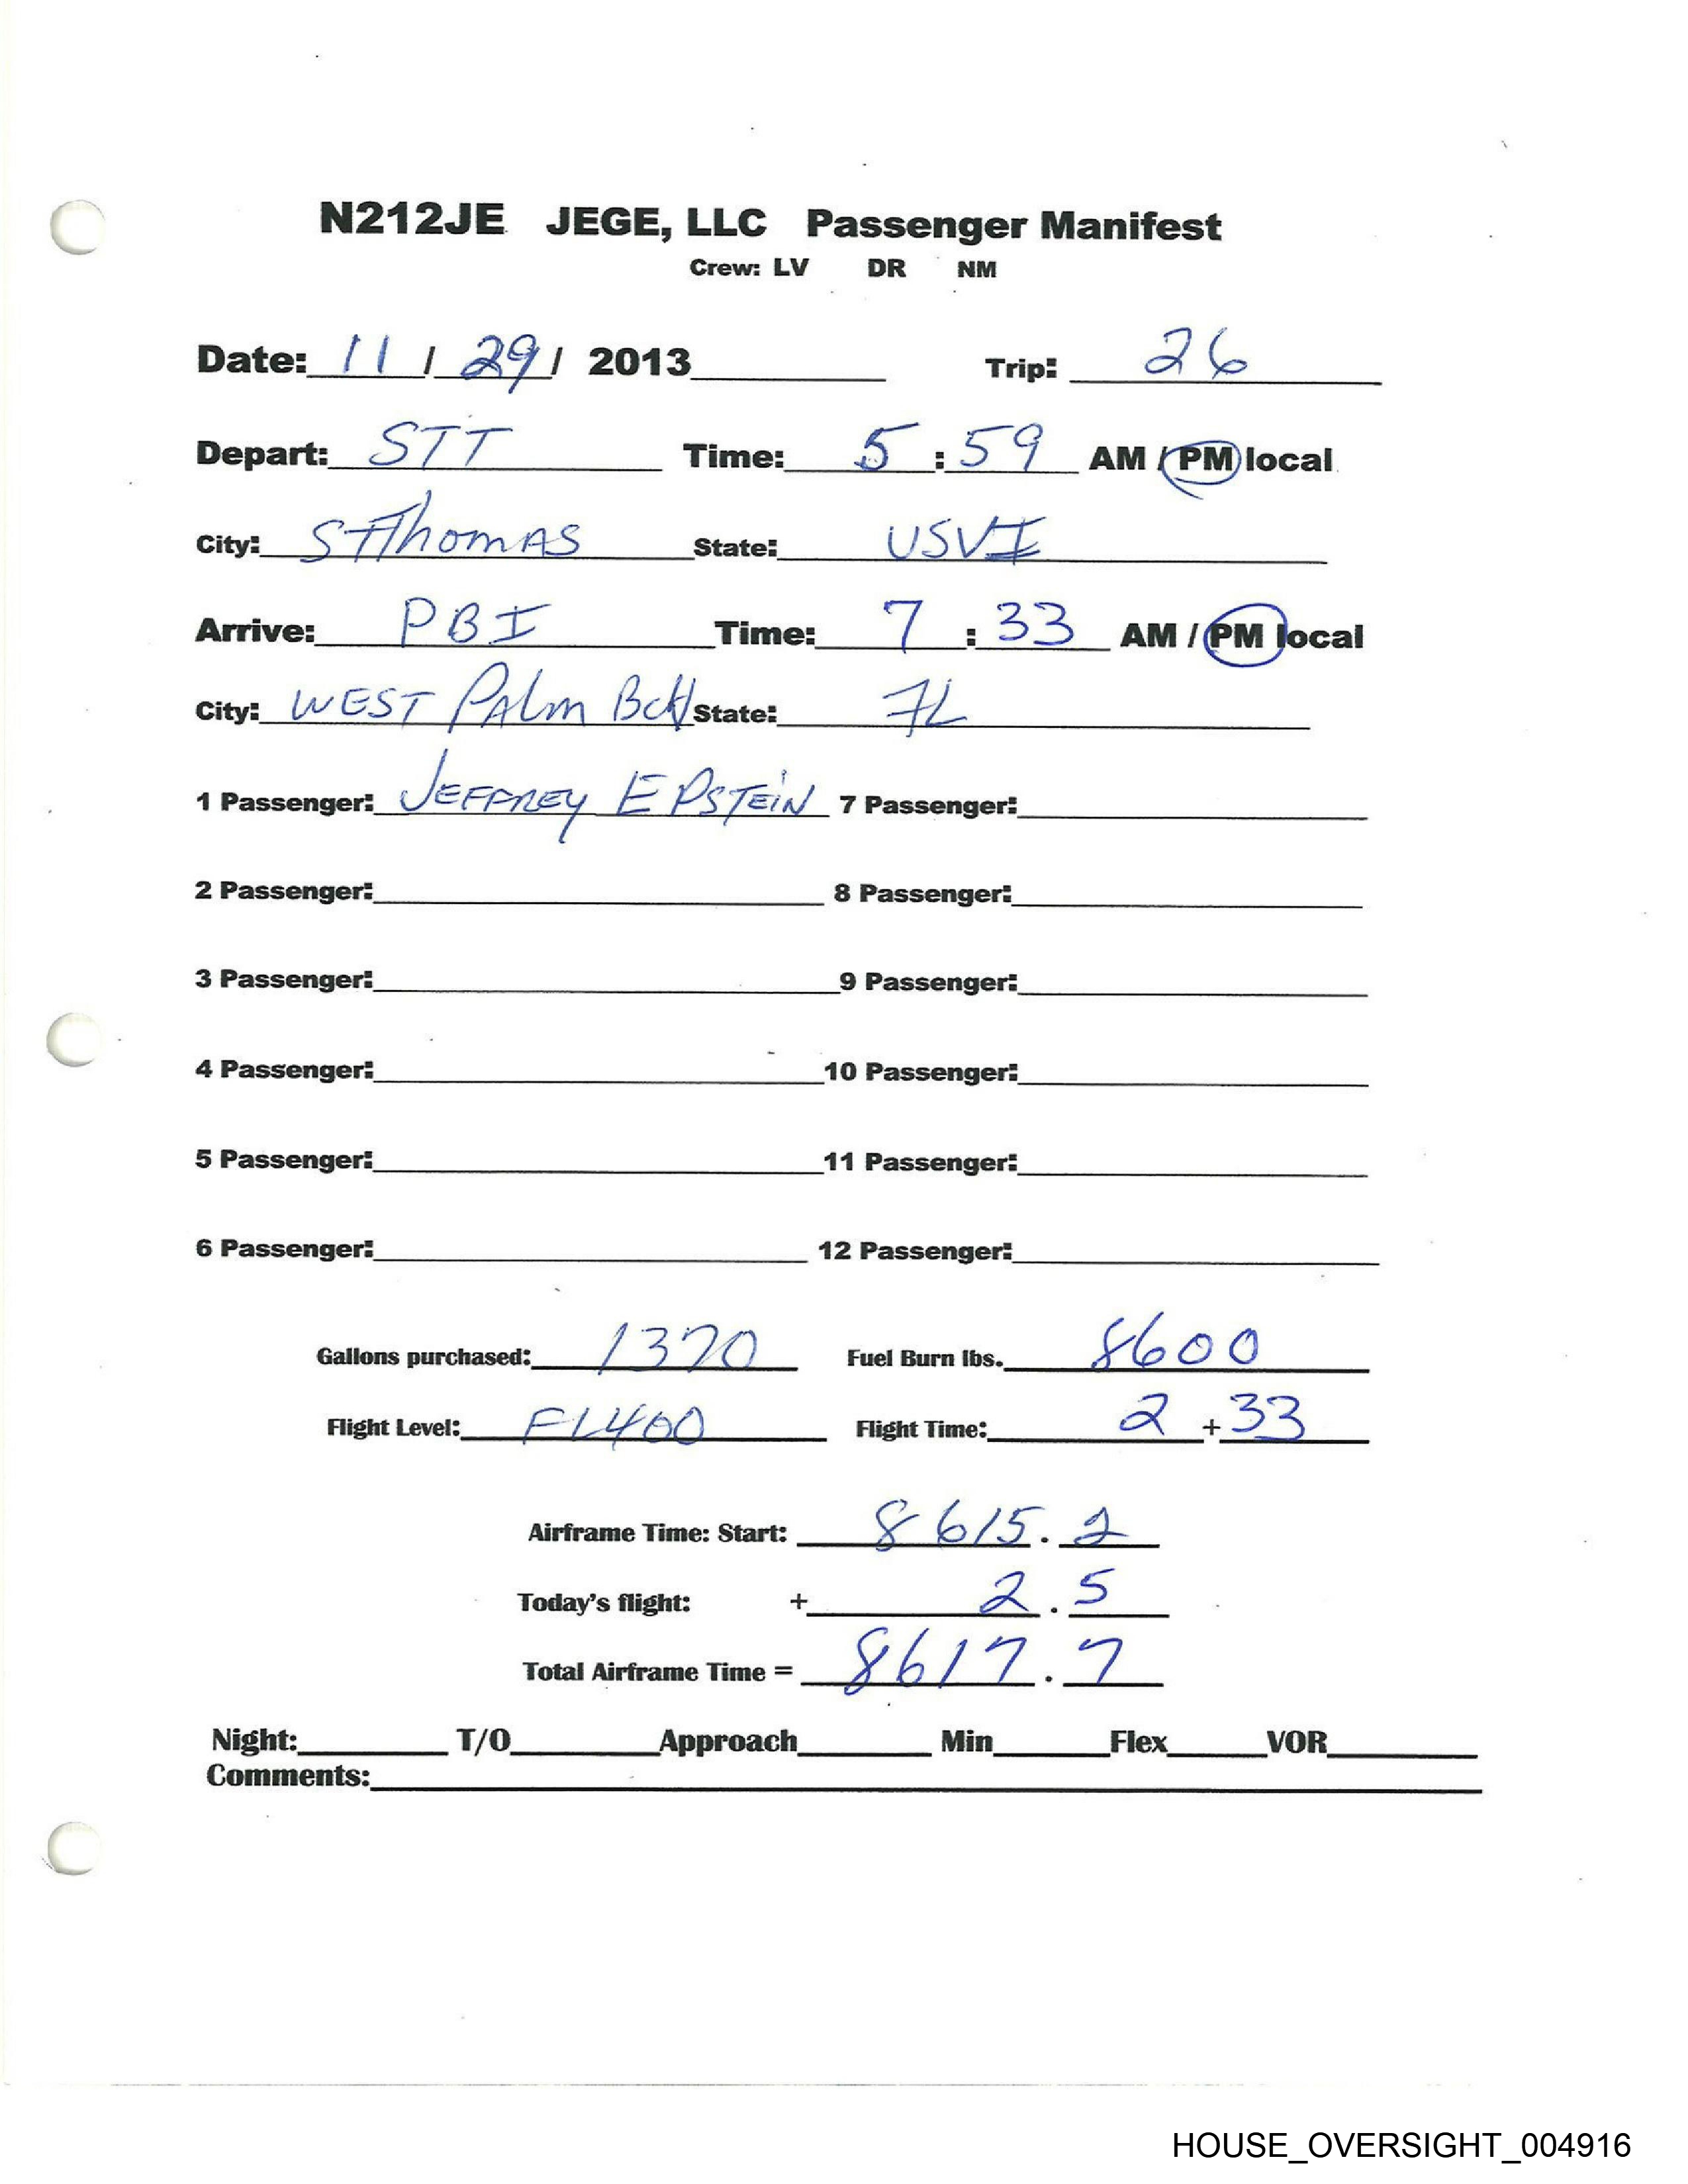 N212JE JEGE, LLC Passenger Manifest
Crew: LV DR NM
Date: 11 / 29 / 2013 Trip: 26
Depart: STT Time: 5 : 59 AM / PM local
City: St Thomas State: USVI
Arrive: PBI Time: 7 : 33 AM / PM local
City: WEST PALm BcH State: FL
1 Passenger: JEFFREY EPSTEIN 7 Passenger:
2 Passenger: 8 Passenger:
3 Passenger: 9 Passenger:
4 Passenger: 10 Passenger:
5 Passenger: 11 Passenger:
6 Passenger: 12 Passenger:
Gallons purchased: 1370 Fuel Burn lbs. 8600
Flight Level: FL400 Flight Time: 2 + 33
Airframe Time: Start: 8615.2
Today's flight: + 2.5
Total Airframe Time = 8617.7
Night: T/O Approach Min Flex VOR
Comments:
HOUSE_OVERSIGHT_004916